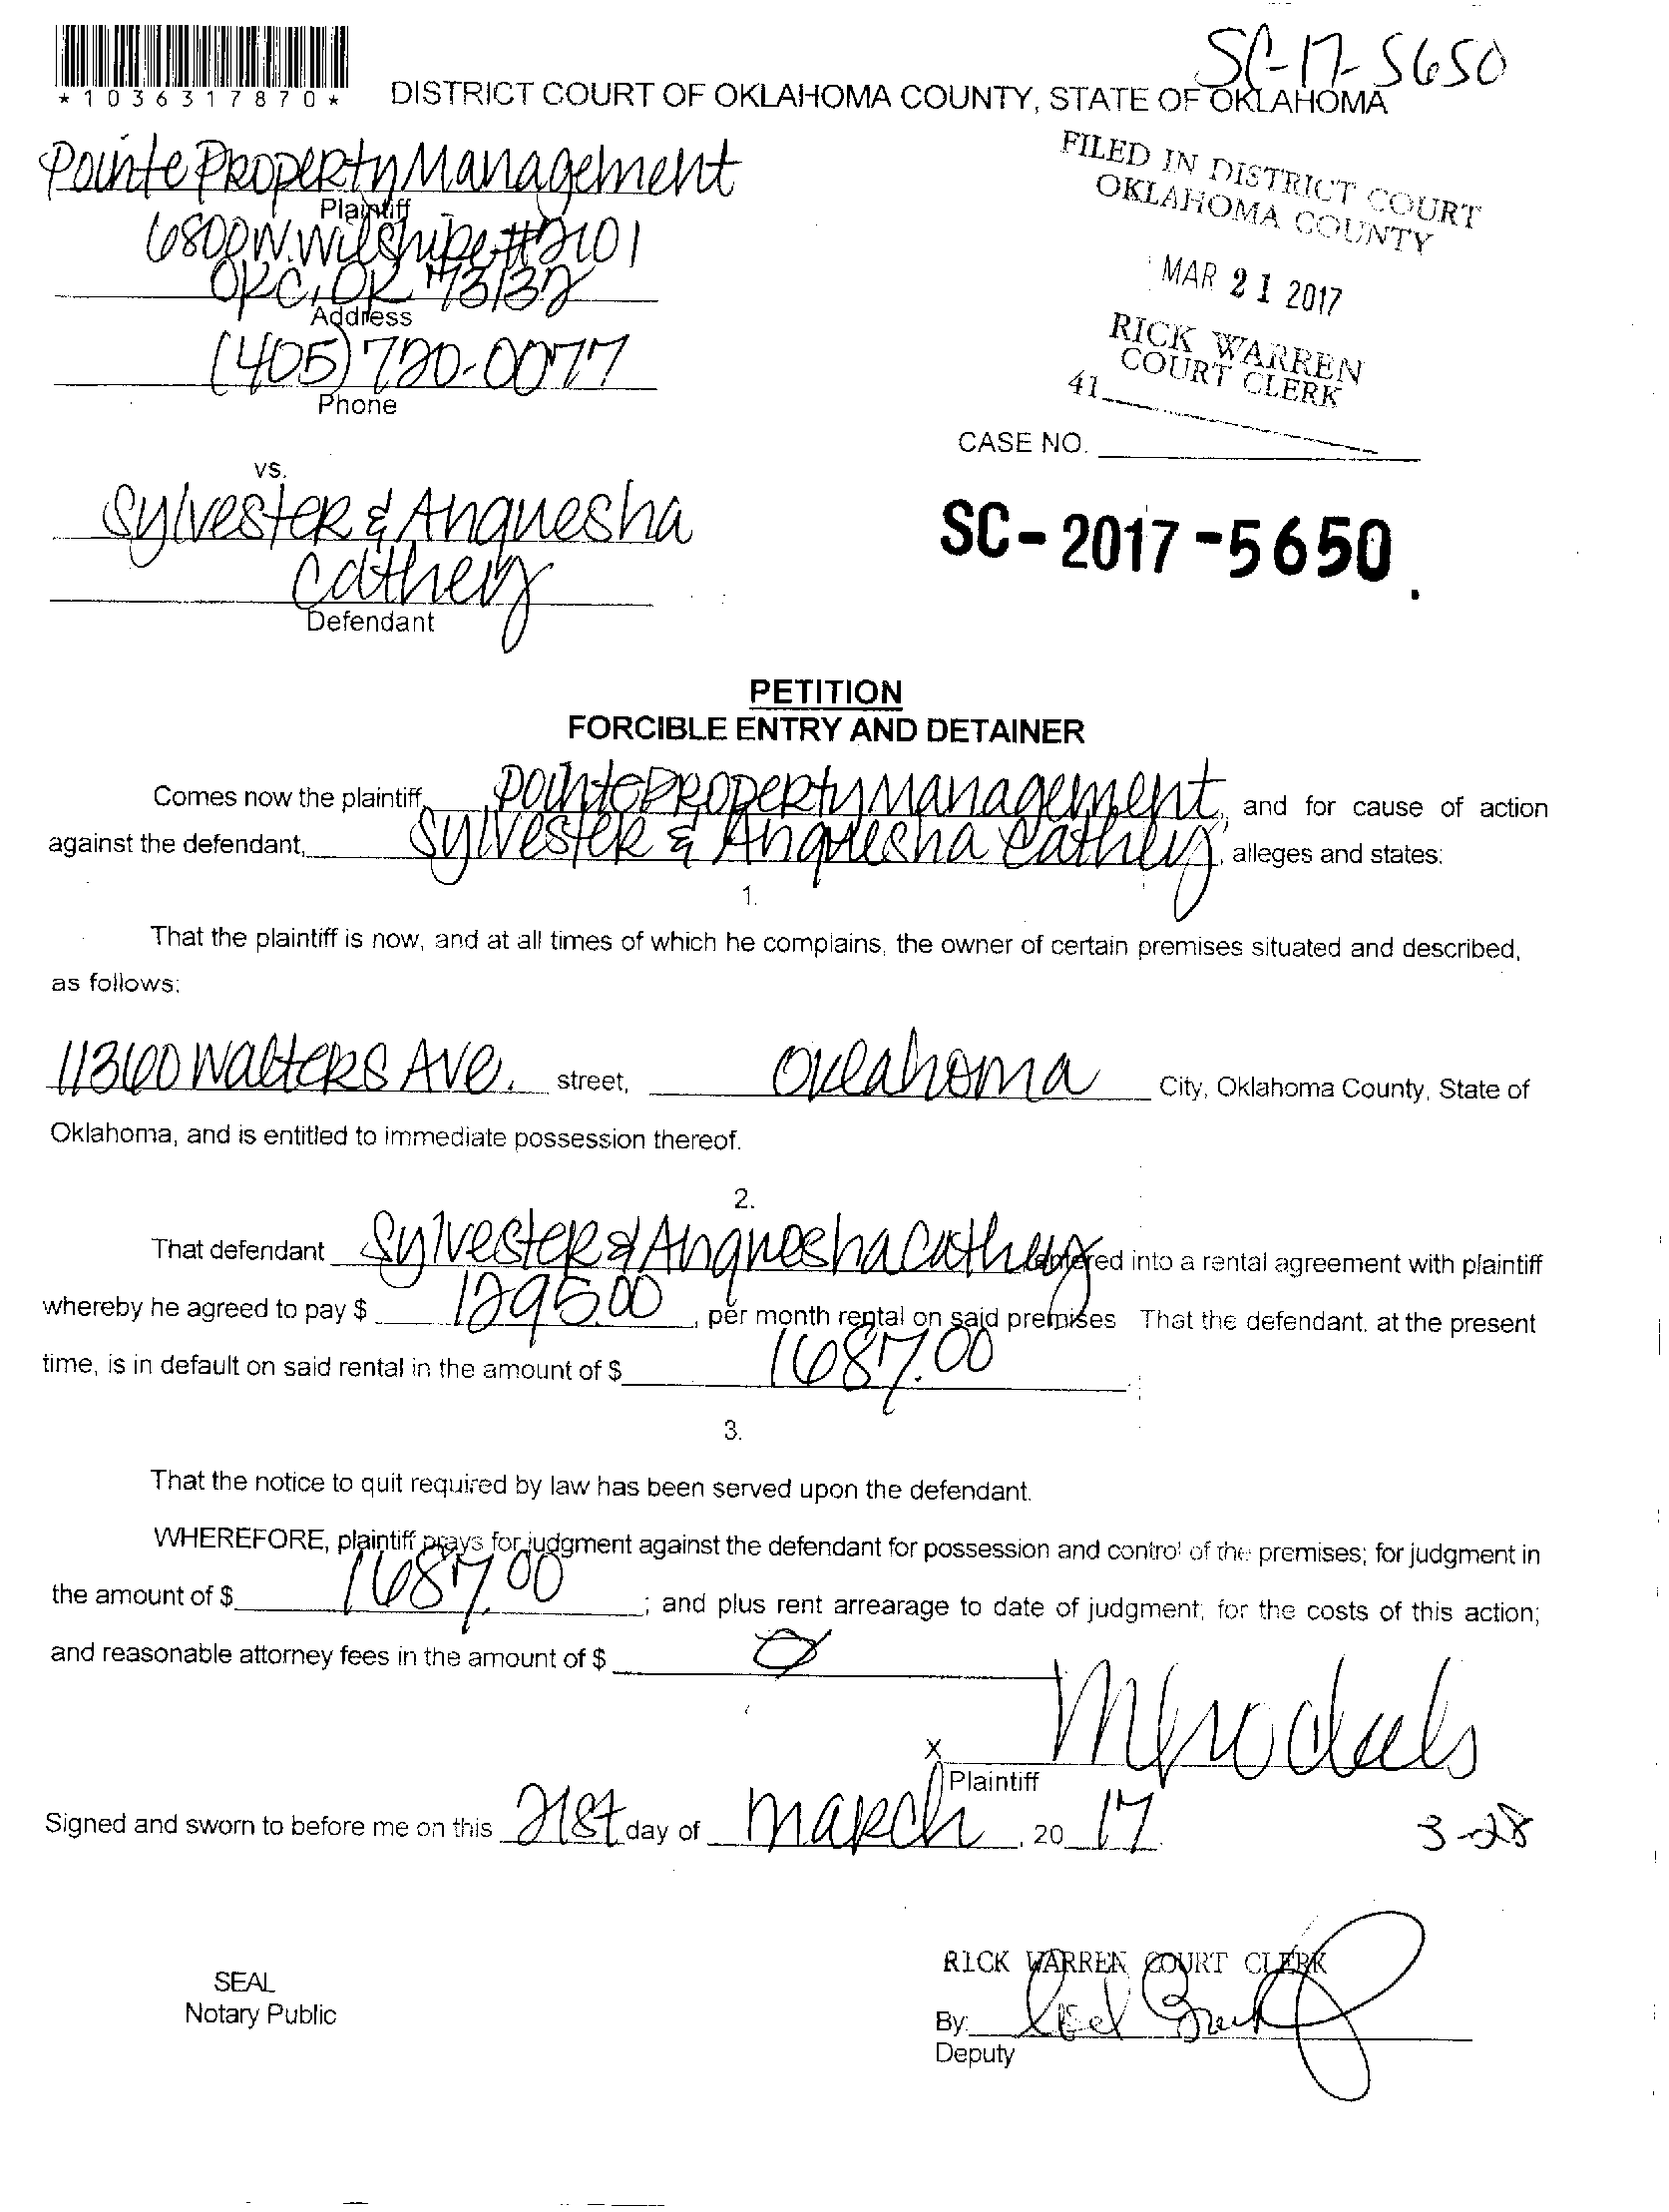 SC-17-5650
*1036317870*
DISTRICT COURT OF OKLAHOMA COUNTY, STATE OF OKLAHOMA
Pointe Property Management
Plaintiff
6800 W. Wilshire #2101
OKC, OK 73132
Address
(405) 720-0077
Phone
FILED IN DISTRICT COURT
OKLAHOMA COUNTY
MAR 21 2017
RICK WARREN
COURT CLERK
41
CASE NO.
SC-2017-5650
vs.
Sylvester & Anquesha
Cathey
Defendant
PETITION
FORCIBLE ENTRY AND DETAINER
Comes now the plaintiff, Pointe Property Management, and for cause of action
against the defendant, Sylvester & Anquesha Cathey, alleges and states:
1.
That the plaintiff is now, and at all times of which he complains, the owner of certain premises situated and described,
as follows:
11360 Walters Ave. street, Oklahoma City, Oklahoma County, State of
Oklahoma, and is entitled to immediate possession thereof.
2.
That defendant Sylvester & Anquesha Cathey entered into a rental agreement with plaintiff
whereby he agreed to pay $ 1295.00, per month rental on said premises That the defendant, at the present
time, is in default on said rental in the amount of $ 1687.00
3.
That the notice to quit required by law has been served upon the defendant.
WHEREFORE, plaintiff prays for judgment against the defendant for possession and control of the premises; for judgment in
the amount of $ 1687.00; and plus rent arrearage to date of judgment; for the costs of this action;
and reasonable attorney fees in the amount of $ 0
X
Plaintiff
Signed and sworn to before me on this 21st day of March, 20 17
3-28
SEAL
Notary Public
RICK WARREN COURT CLERK
By:
Deputy